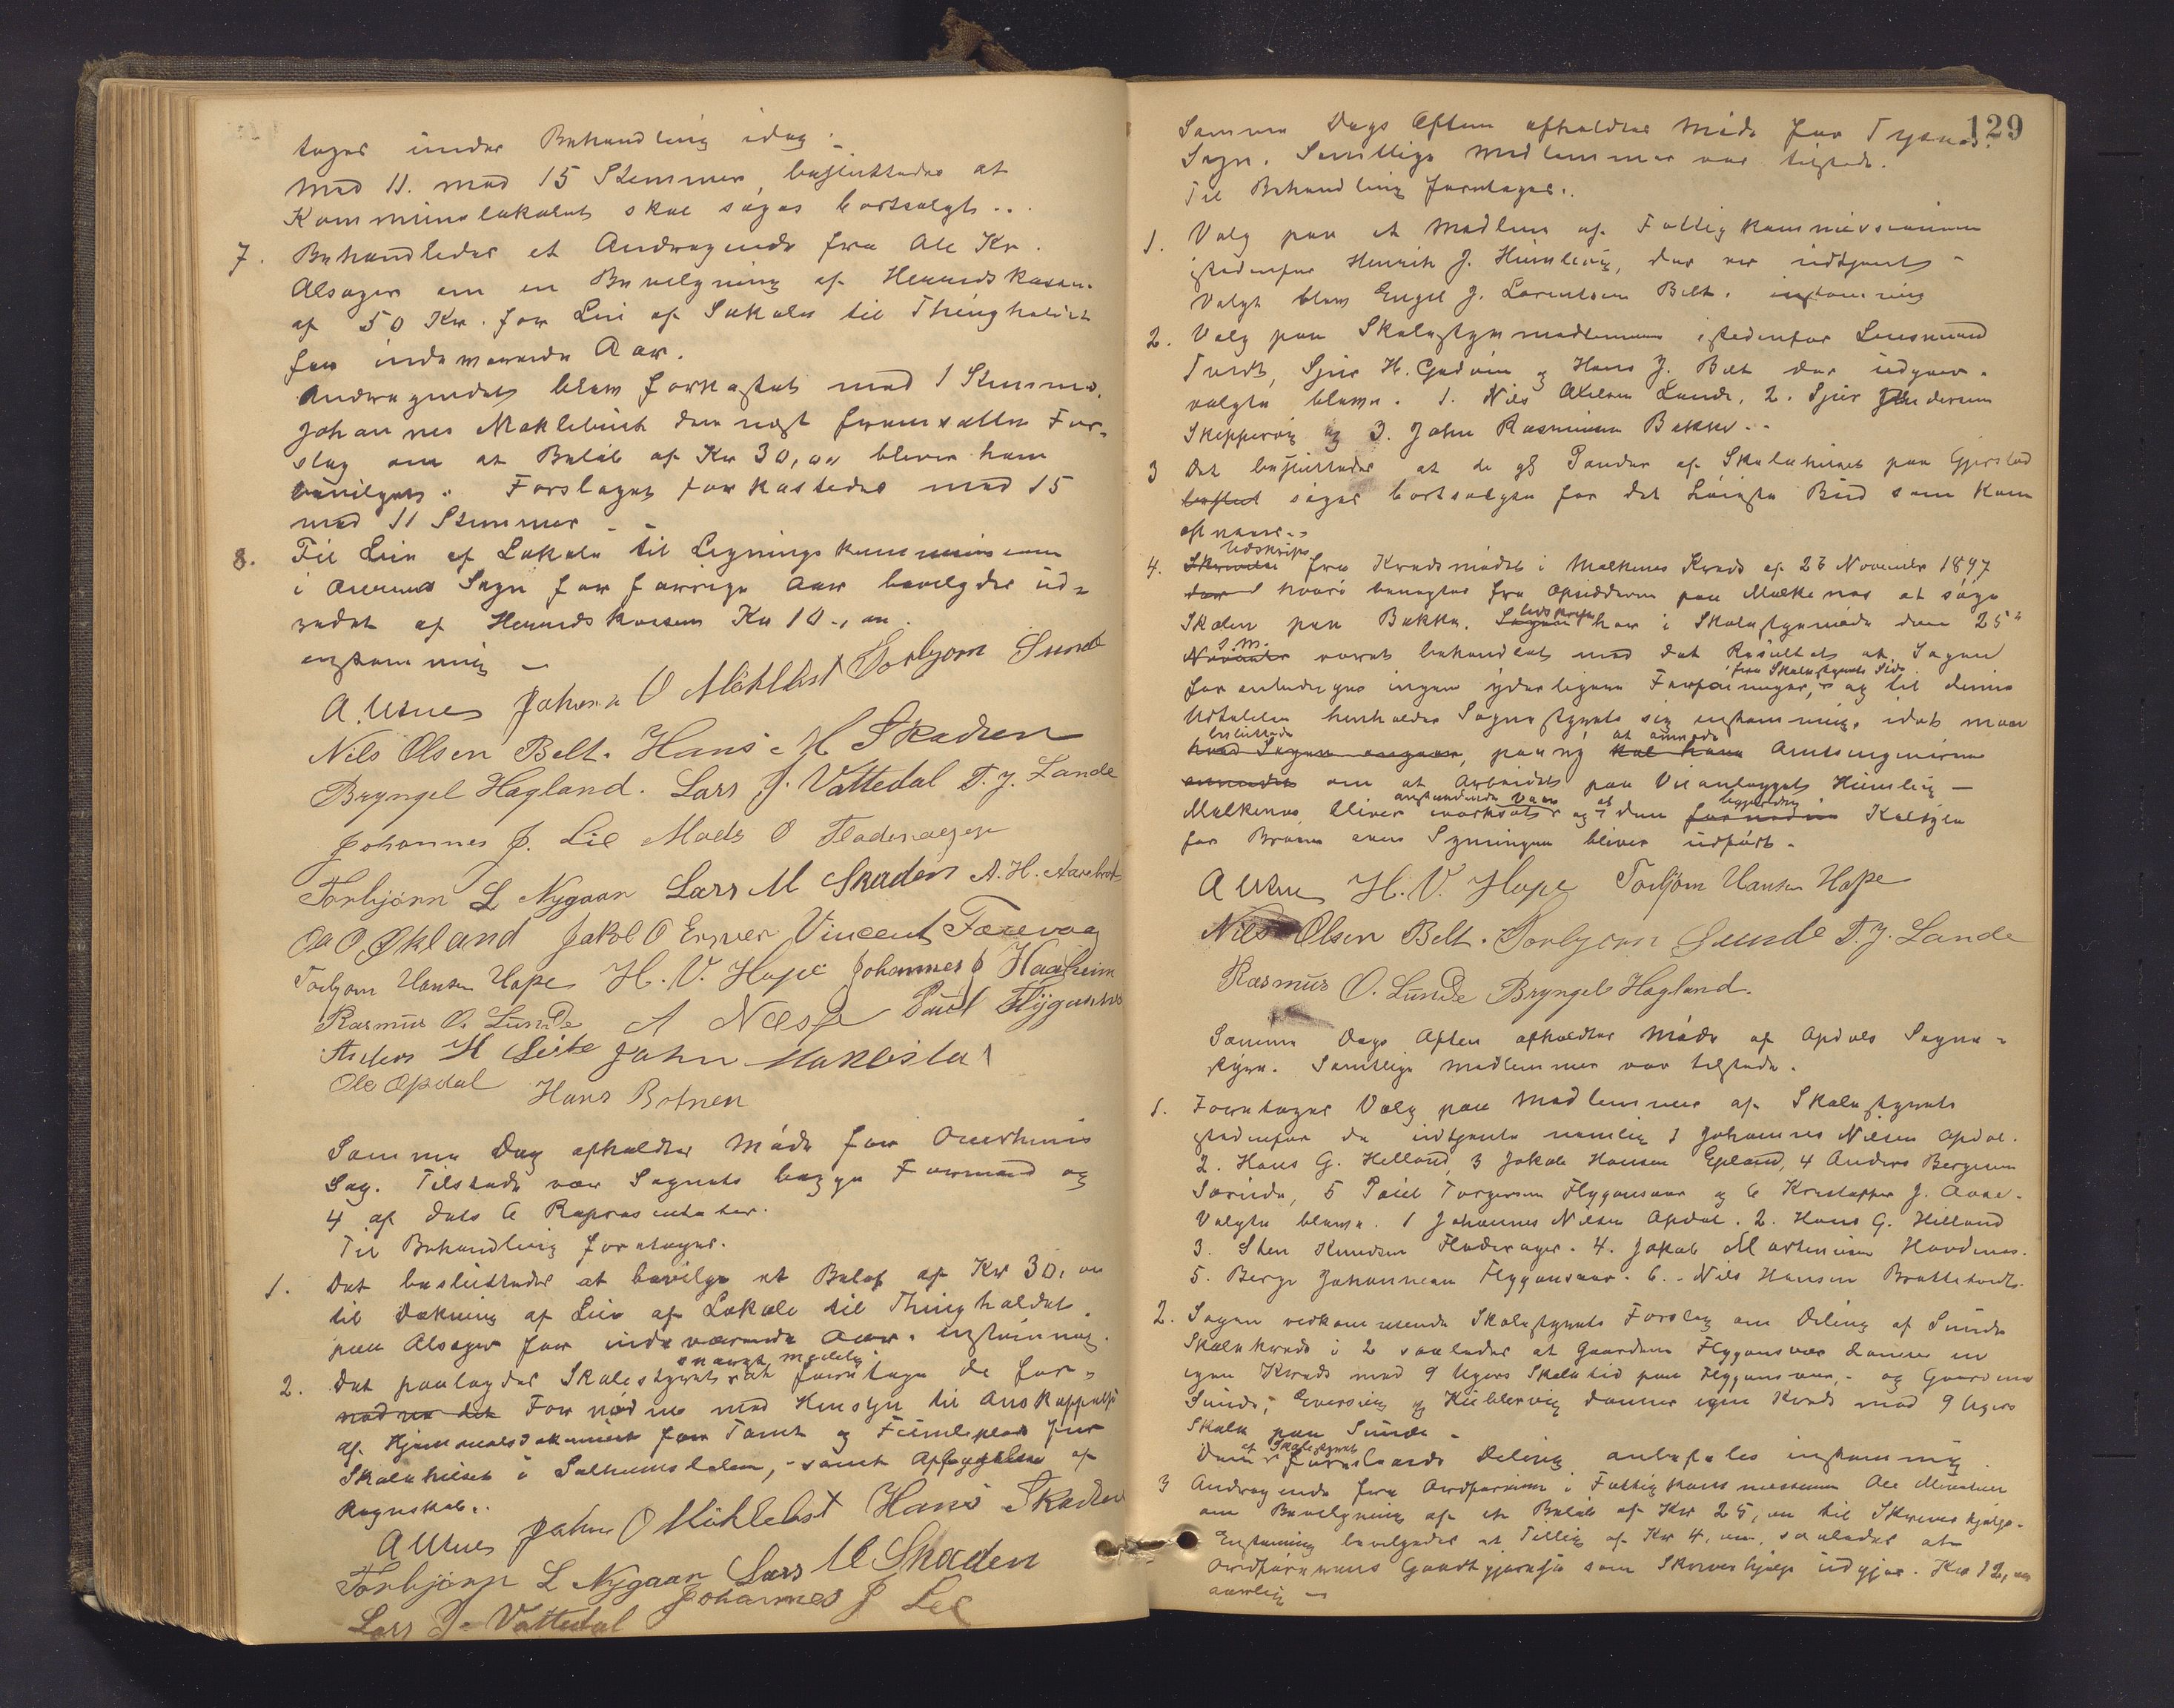 tages under Behandling idag.
Med 11 mod 15 Stemmer besluttedes at
Kommunelokalet skal søges bortsolgt..
7. Behandledes et Andragende fra Ole Kr.
Alsager om en Bevilgning af Herredskassen
af 50 Kr. for Leie af Lokale til Thingholdet
for indeværende Aar.
Andragendet blev forkastet med 1 Stemme.
Johannes Møklebust dernæst fremsatte For-
slag om at Beløb af Kr 30,00 bliver ham
bevilget. Forslaget forkastedes med 15
mod 11 Stemmer
8. Til Leie af Lokale til Ligningskommissionen
i Sogn for forrige Aar bevilgdes ud-
redet af Herredskassen Kr 10.,00.
enstemmig –
Johan O Möklebst Torbjørn Sunde
Nils Olsen Belt. Hans M Skaden
Bryngel Hagland. Lars J. Vattedal T. J. Lande
Johannes J. Lie Mads O Fladerager
Torbjörn L Nygaar Lars M Skaden A. H. Aarebrot
Ol O. Økland Jakob O Ersvær Vincent Færevaag
Torbjørn Hansen Hope H. V. Hope Johannes J Haaheim
Rasmus O. Lunde A Næss Paul Flygansvær
Anders H Leite John Maklesta
Ole Opdal Hans Botnen
Samme Dag afholdtes Møde for
Sog. Tilstede var Sognets begge Formænd og
4 af dets 6 Repræsentanter.
Til Behandling foretages.
1. Det besluttedes at bevilge et Beløb af Kr 30,00
til Dækning af Leie af Lokale til Thingholdet
paa Alsager for indeværende Aar. enstemmig.
2. Det paalagdes Skolestyret snarest mulig at foretage de for-
nødne det Fornødne med Hensyn til Anskaffelse
af Hjemmelsdokument for Tomt og Fiimleplads for
Skolehuset i, samt af
Regnskab..
Johan O Möklebst Hans Skaden
Torbjörn L Nygaar Lars M Skaden
Johannes J Lie
Lars J. Vattedal
129
Samme Dags Aften afholdtes Møde for Tysnes
Sogn. Samtlige Medlemmer var tilstede.
Til Behandling foretages..
1. Valg paa et Medlem af Fattigkommissionen
istedenfor Henrik J. Heimleiy, der er udtjent –
Valgt blev Engel J. Larentsen Belt. enstemmig
2. Valg paa Skolestyremedlemmer istedenfor Lensmand
Tvedt, Sjur H. Gjøvin og Hans J. Belt der udgaar.
valgte bleve. 1. Nils Akselsen Lande, 2. Sjur Andersen
Skeppevig og 3. John Rasmussen Bakke..
3 Det besluttedes at de gl Tomter af Skolehuset paa Gjerstad
søges bortsolgte for det høieste Bud som kan
opnaaes..
4. Skrivelse Udskrift fra Kredsmødet i Malkenes Kreds af 23 November 1897
hvori beregtes fra Opsidderne paa Malkenes at søge
Skolen paa Bakke. Udskriften har i Skolestyremøde den 25"
November s.m. været behandlet med det Resultat at Sagen
foranlediger ingen yderligere Forføininger, fra Skolestyrets Side og til denne
Udtalelse henholder Sognestyret sig enstemmig, idet man
hvad Sagen angaar, besluttede paany at anmode Amtsingeniøren
anmodet om at Arbeidet paa Veianlægget Heimleiy –
Malkenes bliver iværksat anstundende Vaar og at den fornødne Kalkyle
for Broen over bliver udført.
H. V. Hope Torbjørn Hansen Hope
Nils Olsen Belt. Torbjørn Sunde T. J. Lande
Rasmus O. Lunde Bryngel Hagland.
Samme Dags Aften afholdtes Møde af Opdals Sogne-
styre. Samtlige Medlemmer var tilstede.
1. Foretages Valg paa Medlemmer af Skolestyret
istedenfor de udtjente nemlig 1 Johannes Nilsen Opdal.
2. Hans G. Helland, 3 Jakob Hansen Epland, 4 Anders Bergesen
Sørinde, 5 Paul Torgersen Flygansvær og 6 Kristoffer J. Aase.
Valgte bleve. 1 Johannes Nilsen Opdal. 2. Hans G. Helland
3. Sten Knudsen Fladerager. 4. Jakob Mortensen Hovdenes.
5. Berge Johannesen Flygansvær. 6. Nils Hansen Brattetveit.
2. Sagen vedkommende Skolestyrets Forslag om Deling af Sunde
Skolekreds i 2 saaledes at Gaardene Flygansvær danner en
egen Kreds med 9 Ugers Skoletid paa Flygansvær, – og Gaardene
Sunde, Eversvig og Kublervig danner egen Kreds med 9 Ugers
Skole paa Sunde –
Denne af Skolestyret foreslaaede Deling anbefales enstemmig
3 Andragende fra Ordføreren i Fattigkommissionen Ole
om Bevilgning af et Beløb af Kr 25,00 til Skriverhjælp.
Enstemmig bevilgedes et Tillæg af Kr 4,00, saaledes at
Ordførerens Godtgjørelse som Skriverhjælp udgjør. Kr 12,00
aarlig –